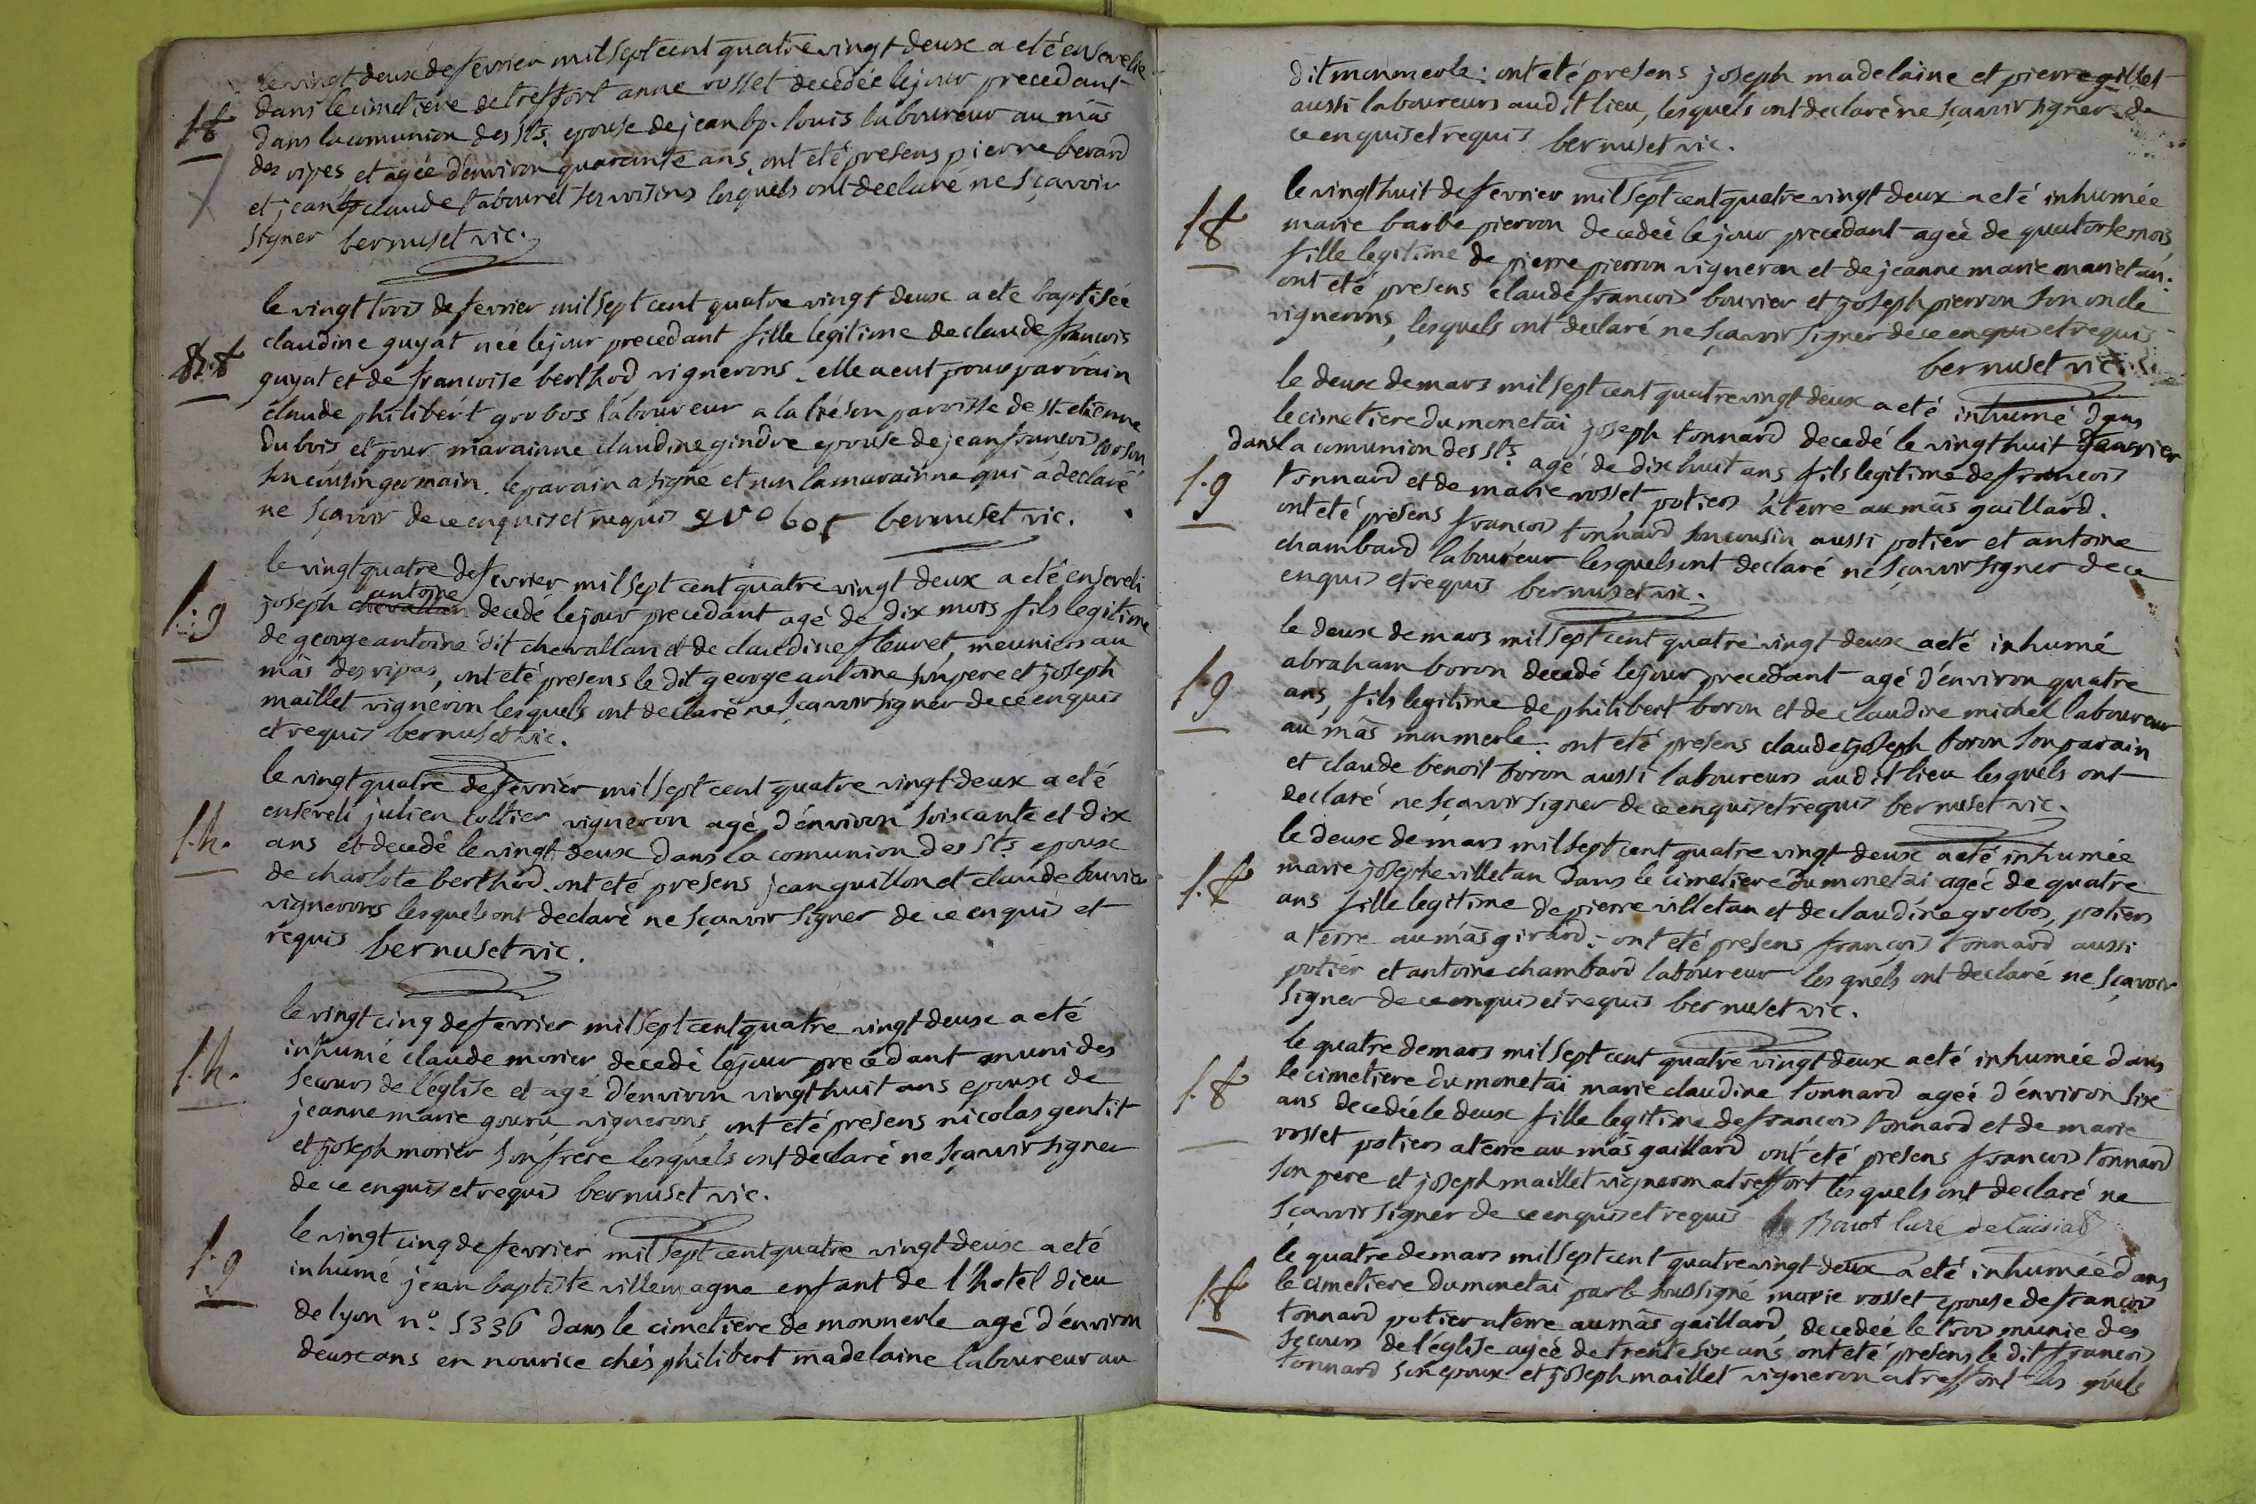 le vingt deux de fevrier mil sept cent quatre vingt deux a eté ensevelie
dans le cimetiere de treffort anne rosset decedée le jour precedant
1.f
dans la comunion des sts. epouse de jean bp. louis laboureur au mâs
des vipes et agée d'environ quarante ans, ont eté presens pierre berard
et jean bp claude tabouret ses voisins lesquels ont declaré ne sçavoir
signer bernuset vic.
le vingt trois de fevrier mil sept cent quatre vingt deux a eté baptisée
claudine guyat neé le jour precedant fille légitime de claude francois
guyat et de francoise berthod vignerons. elle a eut pour parvain
claude philibert grobos laboureur a la trèson paroisse de st. etienne
du bois et pour marainne claudine gindre epouse de jean francois corson
son cousin germain. le parain a signé et non la marainne qui a declaré
ne sçavoir de ce enquis et requis gro bos bernuset vic.
le vingt quatre de fevrier mil sept cent quatre vingt deux a eté enseveli
antoine
1.g
joseph chevallan decedé le jour precedant agé de dix mois fils legitime
de george antoine dit chevallan et de claudine fleuret, meuniers au
mâs des vipas, ont eté presens le dit george antoine son pere et joseph
maillet vigneron lesquels ont declaré ne sçavoir signer de ce enquis
et requis bernuset vic.
le vingt quatre de fevrier mil sept cent quatre vingt deux a eté
enseveli julien cottier vigneron agé d'environ soiscante et dix
1.h.
ans et decedé le vingt deux dans la comunion des sts. epoux
de charlote berthod. ont eté presens jean guillon et claude bouvier
vignerons lesquels ont declaré ne sçavoir signer de ce enquis et
requis bernuset vic.
le vingt cinq de fevrier mil sept cent quatre vingt deux a eté
inhumé claude morier decedé le jour precedant muni des
1.h.
secours de l'église et agé d'environ vingt huit ans epoux de
jeanne marie gouru vignerons, ont eté presens nicolas gentit
et joseph morier son frere lesquels ont declaré ne sçavoir signer
de ce enquis et requis bernuset vic.
le vingt cinq de fevrier mil sept cent quatre vingt deux a eté
1.g
inhumé jean baptiste villemagne enfant de l'hotel dieu
de lyon n°. 5336 dans le cimetiere de monmerle agé d'environ
deux ans en nourice chés philibert madelaine laboureur au
dit monmerle: ont eté presens joseph madelaine et pierre gillet
aussi laboureurs audit lieu, lesquels ont declaré ne sçavoir signer de
ce enquis et requis bernuset vic.
le vingt huit de fevrier mil sept cent quatre vingt deux a eté inhumée
1.f
marie barbe pierron decedeé le jour precedant ageé de quatorse mois,
fille legitime de pierre pierron vigneron et de jeanne marie marietan.
ont eté presens claude francois bouvier et joseph pierron son oncle
vignerons, lesquels ont declaré ne sçavoir signer de ce enquis et requis
bernuset vic.
le deux de mars mil sept cent quatre vingt deux a eté inhumé dans
le cimetiere du monetai joseph tonnard decedé le vingt huit
dans la comunion des sts. agé de dix huit ans fils legitime de francois
1.g
tonnard et de marie rosset, potiers à terre au mâs gaillard.
ont eté presens francois tonnard son cousin aussi potier et antoine
chambard laboureur lesquels ont declaré ne sçavoir signer de ce
enquis et requis bernuset vic.
le deux de mars mil sept cent quatre vingt deux a eté inhumé
1.g
abraham boron decedé le jour precedant agé d'environ quatre
ans, fils legitime de philibert boron et de claudine michel laboureur
au mâs monmerle. ont eté presens claude joseph boron son parain
et claude benoit boron aussi laboureurs audit lieu lesquels ont
declaré ne sçavoir signer de ce enquis et requis bernuset vic.
le deux de mars mil sept cent quatre vingt deux a eté inhumée
1.f
marie josephe villetan dans le cimetiere du monetai ageé de quatre
ans fille legitime de pierre villetan et de claudine grobos, potiers
a terre au mâs girard. ont eté presens francois tonnard aussi
potier et antoine chambard laboureur lesquels ont declaré ne sçavoir
signer de ce enquis et requis bernuset vic.
le quatre de mars mil sept cent quatre vingt deux a eté inhumée dans
1.f
le cimetiere du monetai marie claudine tonnard ageé d'environ six
ans decedée le deux fille legitime de francois tonnard et de marie
rosset potiers a terre au mâs gaillard ont eté presens francois tonnard
son pere et joseph maillet vigneron a treffort lesquels ont declaré ne
sçavoir signer de ce enquis et requis Bouot curé de
le quatre de mars mil sept cent quatre vingt deux a eté inhumée dans
1.f
le cimetiere du monetai par le soussigné marie rosset epouse de francois
tonnard potier a terre au mâs gaillard, decedeé le trois munie des
secours de l'église agée de trente six ans ont eté presens le dit francois
tonnard son epoux et joseph maillet vigneron a treffort les quels